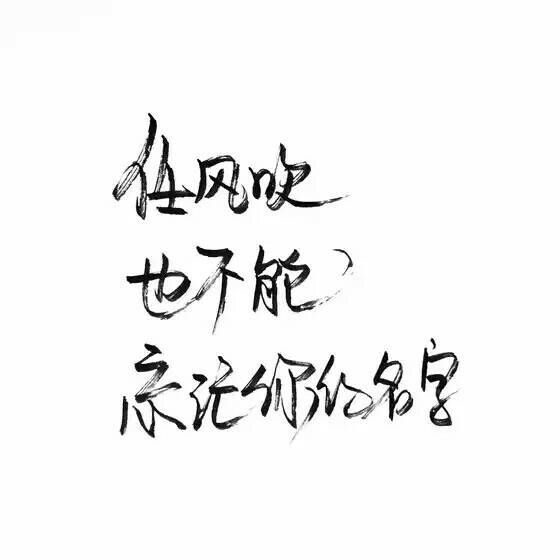 任风吹
也不能
忘记你的名字